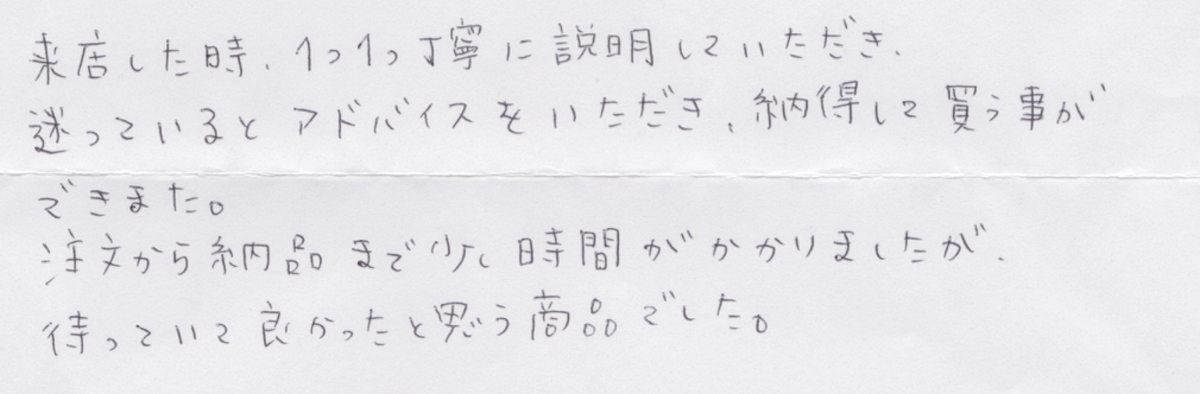 来店した時、1つ1つ丁寧に説明していただき、
迷っているとアドバイスをいただき、納得して買う事が
できまた。
注文から納品まで少し時間がかかりましたが、
待っていて良かったと思う商品でした。